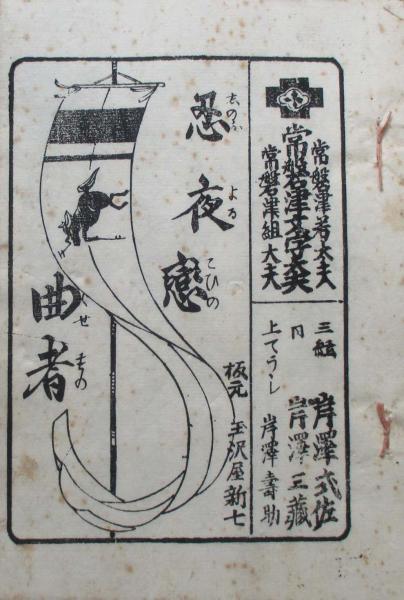 常磐津若太夫
常磐津文字太夫
常磐津組太夫
三絃 岸澤式佐
同 岸澤三蔵
上てうし 岸澤壽助
忍夜戀
しのぶよるこひの
曲者
くせもの
板元 玉沢屋新七